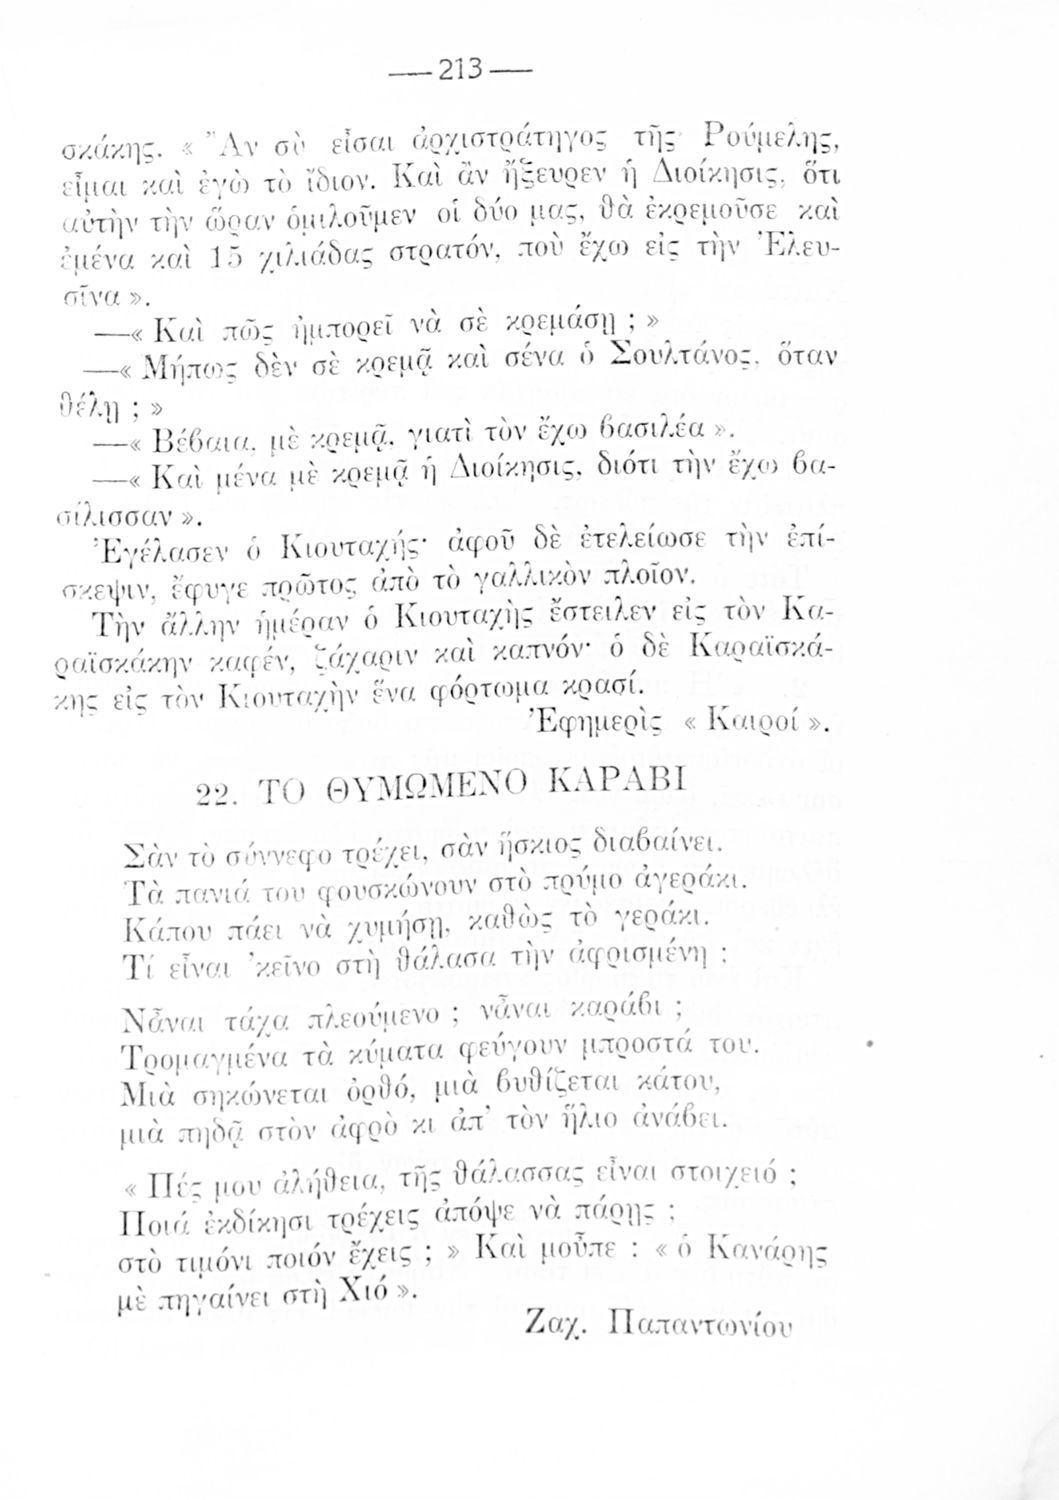 — 213 —
σκάκης. « Ἂν σὺ εἶσαι ἀρχιστράτηγος τῆς Ρούμελης,
εἶμαι καὶ ἐγὼ τὸ ἴδιον. Καὶ ἂν ἤξευρεν ἡ Διοίκησις, ὅτι
αὐτὴν τὴν ὥραν ὁμιλοῦμεν οἱ δύο μας, θὰ ἐκρεμοῦσε καὶ
ἐμένα καὶ 15 χιλιάδας στρατόν, ποὺ ἔχω εἰς τὴν Ἐλευ-
σῖνα ».
—« Καὶ πῶς ἠμπορεῖ νὰ σὲ κρεμάσῃ ; »
—« Μήπως δὲν σὲ κρεμᾷ καὶ σένα ὁ Σουλτάνος, ὅταν
θέλῃ ; »
—« Βέβαια, μὲ κρεμᾷ, γιατὶ τὸν ἔχω βασιλέα ».
—« Καὶ μένα μὲ κρεμᾷ ἡ Διοίκησις, διότι τὴν ἔχω βα-
σίλισσαν ».
Ἐγέλασεν ὁ Κιουταχής· ἀφοῦ δὲ ἐτελείωσε τὴν ἐπί-
σκεψιν, ἔφυγε πρῶτος ἀπὸ τὸ γαλλικὸν πλοῖον.
Τὴν ἄλλην ἡμέραν ὁ Κιουταχὴς ἔστειλεν εἰς τὸν Κα-
ραϊσκάκην καφέν, ζάχαριν καὶ καπνόν· ὁ δὲ Καραϊσκά-
κης εἰς τὸν Κιουταχὴν ἕνα φόρτωμα κρασί.
Ἐφημερὶς « Καιροί ».
22. ΤΟ ΘΥΜΩΜΕΝΟ ΚΑΡΑΒΙ
Σὰν τὸ σύννεφο τρέχει, σὰν ἥσκιος διαβαίνει.
Τὰ πανιά του φουσκώνουν στὸ πρύμο ἀγεράκι.
Κάπου πάει νὰ χυμήσῃ, καθὼς τὸ γεράκι.
Τί εἶναι ’κεῖνο στὴ θάλασα τὴν ἀφρισμένη ;
Νἆναι τάχα πλεούμενο ; νἆναι καράβι ;
Τρομαγμένα τὰ κύματα φεύγουν μπροστά του.
Μιὰ σηκώνεται ὀρθό, μιὰ βυθίζεται κάτου,
μιὰ πηδᾷ στὸν ἀφρὸ κι ἀπ’ τὸν ἥλιο ἀνάβει.
« Πές μου ἀλήθεια, τῆς θάλασσας εἶναι στοιχειό ;
Ποιά ἐκδίκησι τρέχεις ἀπόψε νὰ πάρῃς ;
στὸ τιμόνι ποιόν ἔχεις ; » Καὶ μοὖπε : « ὁ Κανάρης
μὲ πηγαίνει στὴ Χιό ».
Ζαχ. Παπαντωνίου